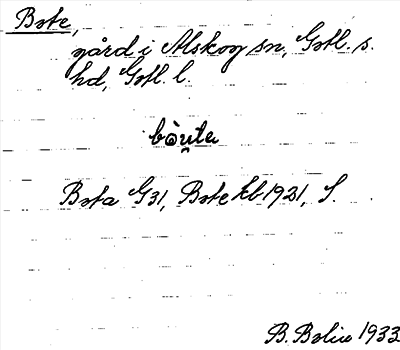 Bote,
gård i Alskog sn, Gotl. s.
hd, Gotl. l.
bòu̯ta
Bota G31, Bote kb 1921, S.
B. Bolin 1933